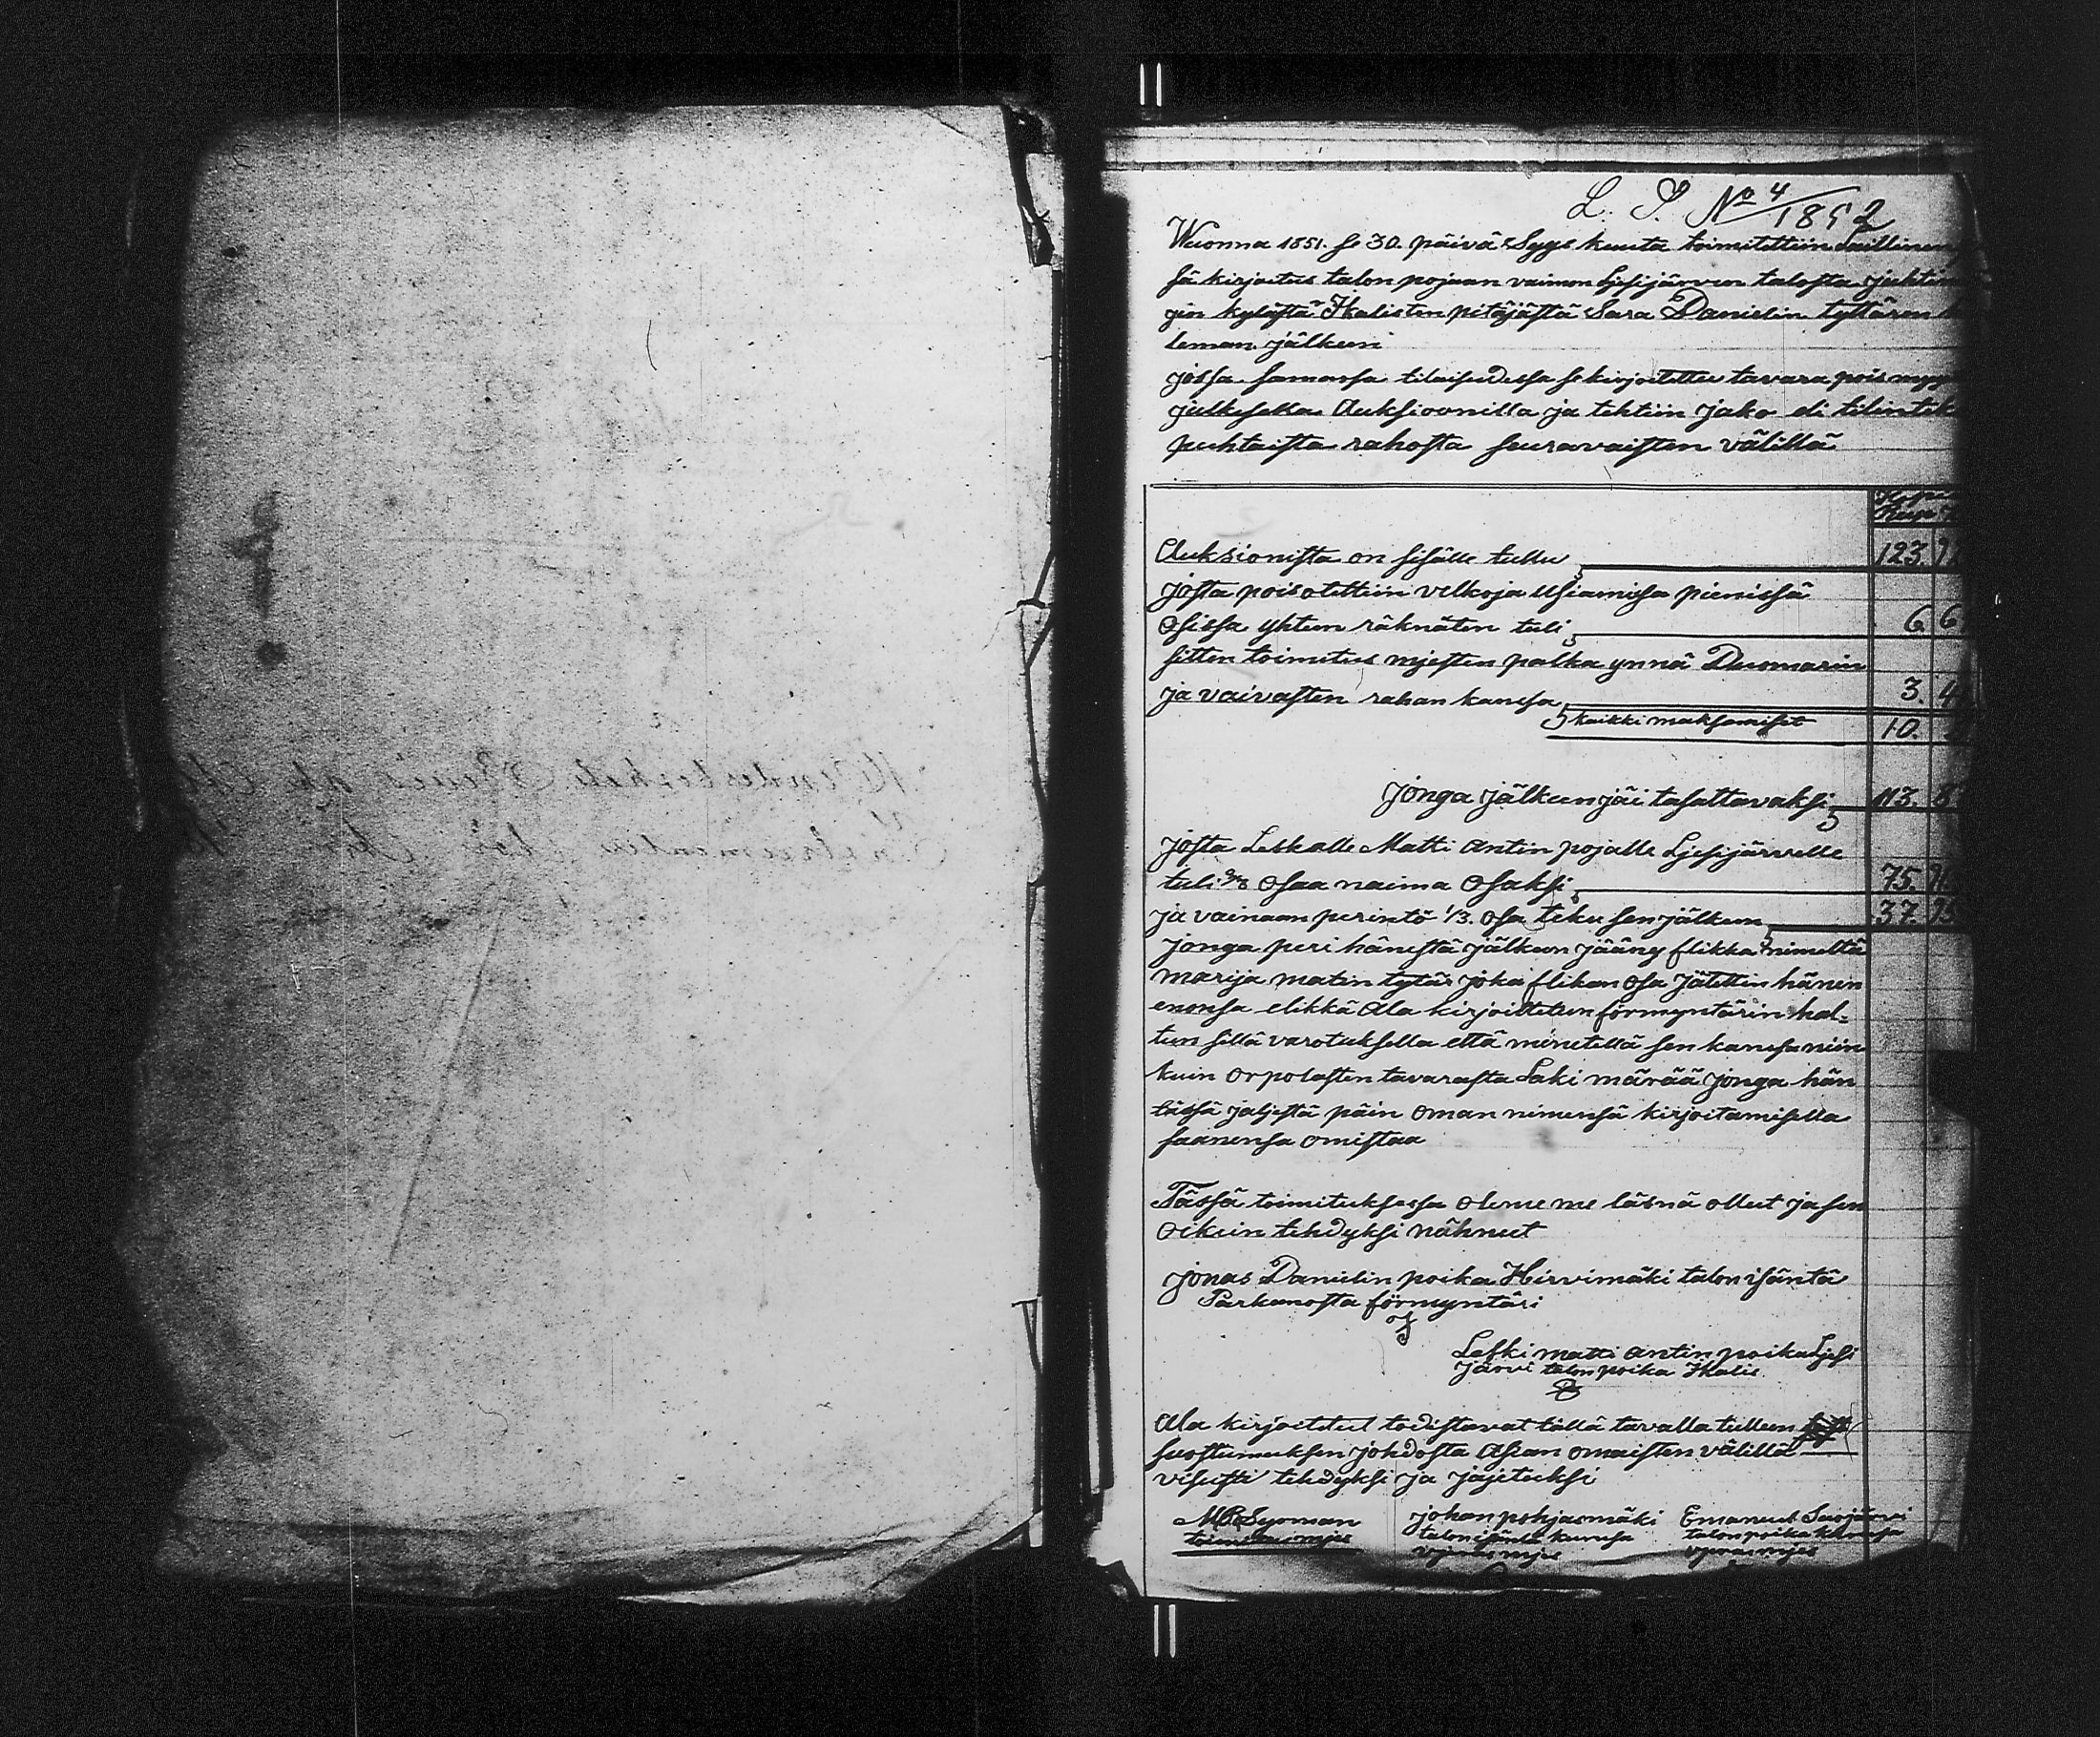 L. S. No 4/1852
Wuonna 1851. se 30. päivä Syys kuuta toimitettiin laillinen
sä kirjoitus talon pojaan vaimon Ljesijärven talosta Jyhtin
gin kylästä Ikalisten pitäjästä Sara Danielin tyttären
leman jälkeen
jossa samassa tilaisudessa se kirjoitettu tavara pois myy
julkisella Auksioonilla ja tehtiin jako eli tilintek
puhtaista rahosta seuravaisten välillä
Auksionista on sisälle tullu 123.
josta pois otettiin velkoja usiamisa pienissä
Osissa yhteen räknäten tuli 6. 6
sitten toimitus mjesten palka ynnä Duomarin
ja vaivasten rahan kanssa 3. 4
kaikki maksamiset 10.
jonga jälkeen jäi tasattavaksi 113. 8
josta Leskalle Matti Antin pojalle Ljesijärvelle
tuli 2/3 Osaa naima Osaksi 75.
ja vainaan perintö 1/3. Osa teku sen jälkeen 37. 95
jonga peri hänestä jälkeen jääny flikka nimeltä
marija matin tytär joka flikan Osa jätettin hänen
enonsa elikkä Ala kirjoitetun förmyntärin hal=
tuun sillä varotuksella että menetellä sen kanssa niin
kuin orpolasten tavarasta Laki märää jonga hän
tässä jäljestä päin Oman nimensä kirjoitamisella
saanensa omistaa
Tässä toimituksessa olemme läsnä ollut ja sen
Oikein tehdyksi nähneet
Jonas Danielin poika Hirvimäki talon isäntä
Parkanosta förmyntäri
Leski matti Antin poika Ljesi
järvi talon poika Ikalis.
Ala kirjoitetut todistavat tällä tavalla tulleen
suostumuksen johdosta Asian omaisten välillä
visusti tehdyksi ja jajetuksi
Syoman Johan pohjasmäki Emanuel Susijärvi
toimitus mjes talon isäntä kunssa talon poika